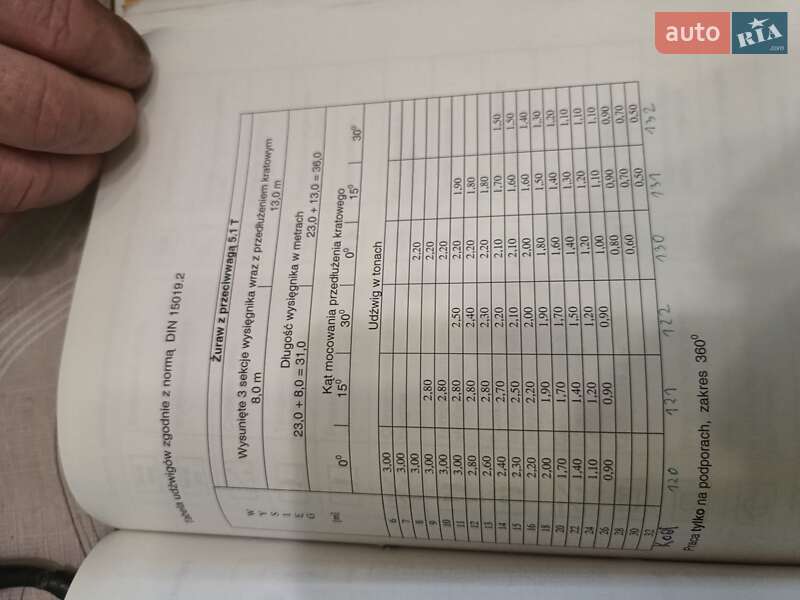 Tabela udźwigów zgodnie z normą DIN 15019.2
Żuraw z przeciwwagą 5,1 T
Wysunięte 3 sekcje wysięgnika wraz z przedłużeniem kratowym
8,0 m 13,0 m
Długość wysięgnika w metrach
23,0 + 8,0 = 31,0 23,0 + 13,0 = 36,0
Kąt mocowania przedłużenia kratowego
0° 15° 30° 0° 15° 30°
Udźwig w tonach
W
Y
S
I
Ę
G
[m]
6 3,00
7 3,00
8 3,00 2,20
9 3,00 2,80 2,20
10 3,00 2,80 2,20
11 3,00 2,80 2,50 2,20 1,90
12 2,80 2,80 2,40 2,20 1,80
13 2,60 2,80 2,30 2,20 1,80
14 2,40 2,70 2,20 2,10 1,70 1,50
15 2,30 2,50 2,10 2,10 1,60 1,50
16 2,20 2,20 2,00 2,00 1,60 1,40
18 2,00 1,90 1,90 1,80 1,50 1,30
20 1,70 1,70 1,70 1,60 1,40 1,20
22 1,40 1,40 1,50 1,40 1,30 1,10
24 1,10 1,20 1,20 1,20 1,20 1,10
26 0,90 0,90 0,90 1,00 1,10 1,10
28 0,80 0,90 0,90
30 0,60 0,70 0,70
32 0,50 0,50
Kod 120 121 122 130 131 132
Praca tylko na podporach, zakres 360°
auto RIA.com